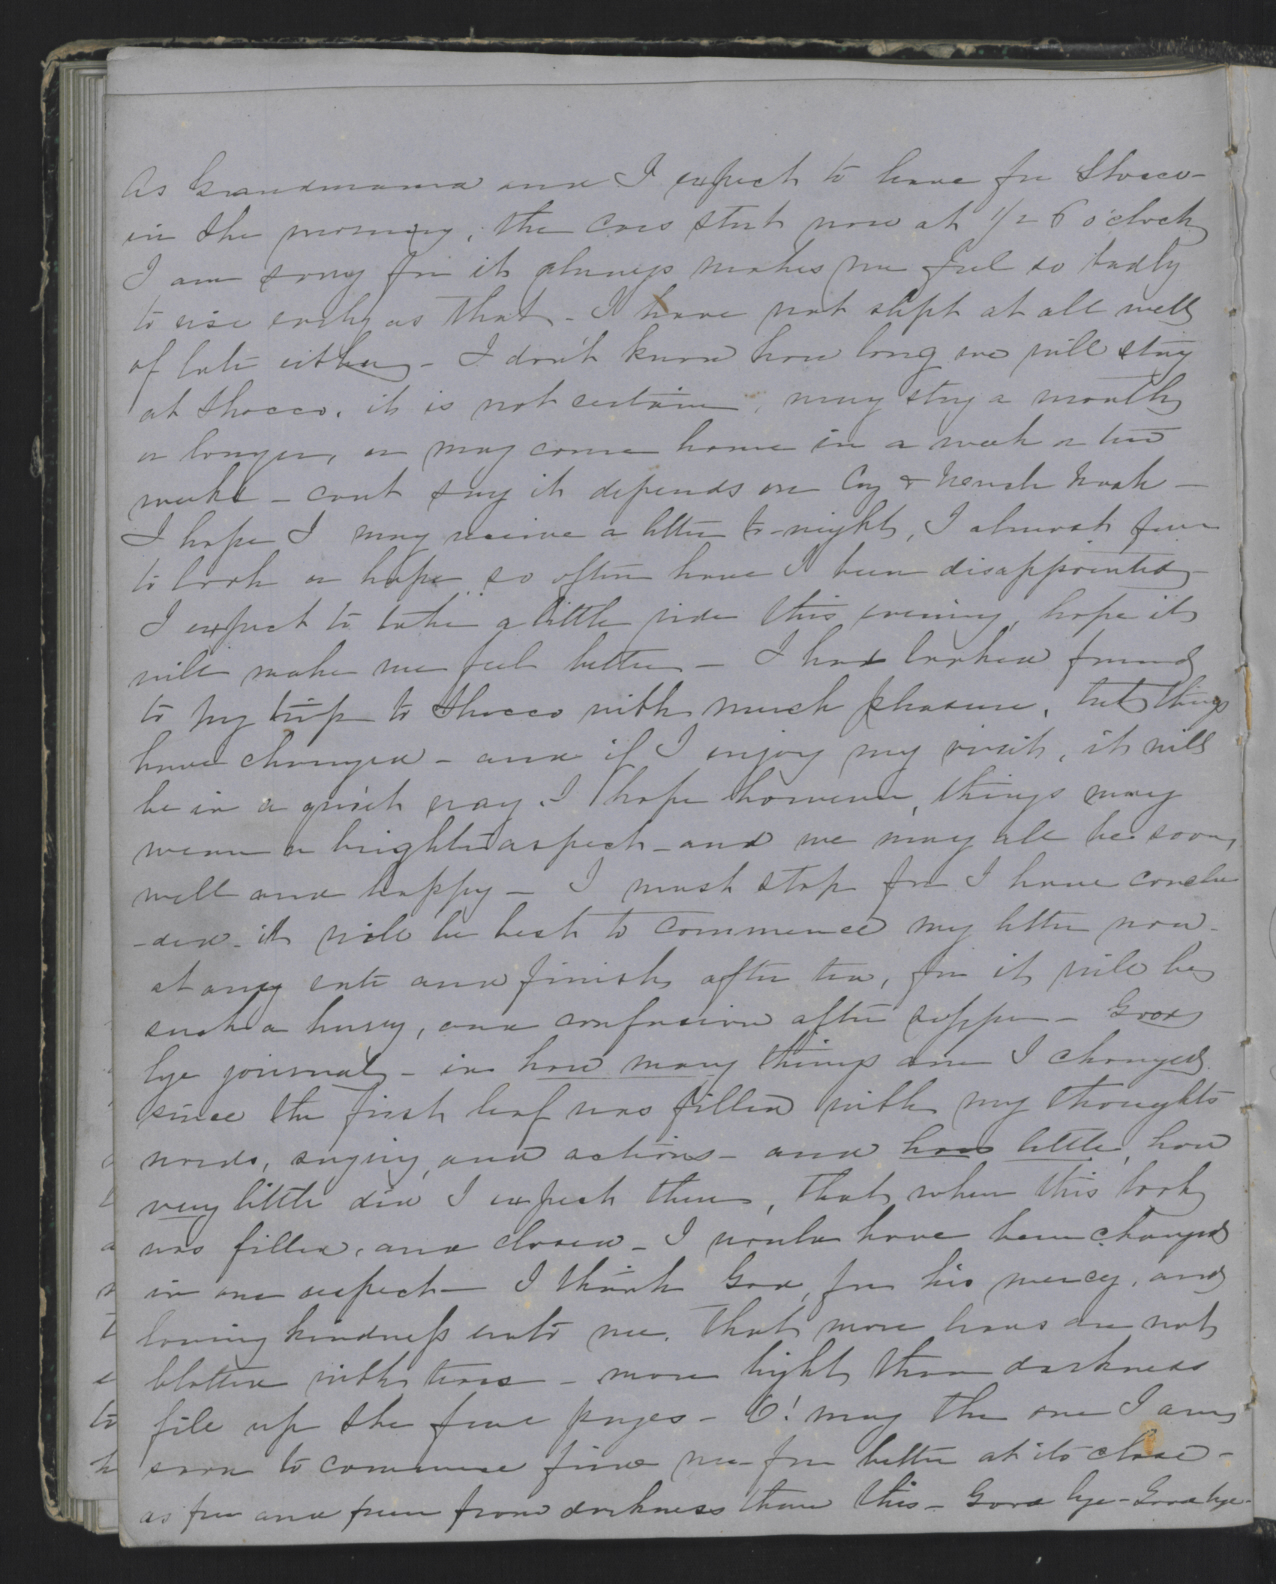 As Grandmama and I expect to leave for Shocco-
in the morning, the cars start now at 1/2 6 o'clock
I am sorry for it always makes me feel so badly
to rise early as that - I have not slept at all well
of late either - I don't know how long we will stay
at Shocco. it is not certain, may stay a month
or longer, or may come home in a week or two
weeks - cant say it depends on Coz &
I hope I may receive a letter to-night, I almost fear
to look or hope so often have I been disappointed -
I expect to take a little ride this evening, hope it
will make me feel better - I had looked forward
to my trip to Shocco with much pleasure, but things
have changed - and if I enjoy my visit, it will
be in a quiet way. I hope however, things may
wear a brighter aspect - and we may all be soon
well and happy - I must stop for I have conclu
-ded - it will be best to commence my letter now -
at any rate and finish after tea, for it will be
such a hurry, and confusion after supper - Good
bye journal - in how many things am I changed
since the first leaf was filled with my thoughts
words, saying, and actions - and how little, how
very little did I expect then, that when this book
was filled, and closed - I would have been changed
in one respect - I thank God, for his mercy, and
loving kindness unto me. that more leaves are not
blotted with tears - more light than darkness
fill up the few pages - O! may the one I am
soon to commence find me far better at its close -
as free and freer from darkness than this - Good bye - Good bye -